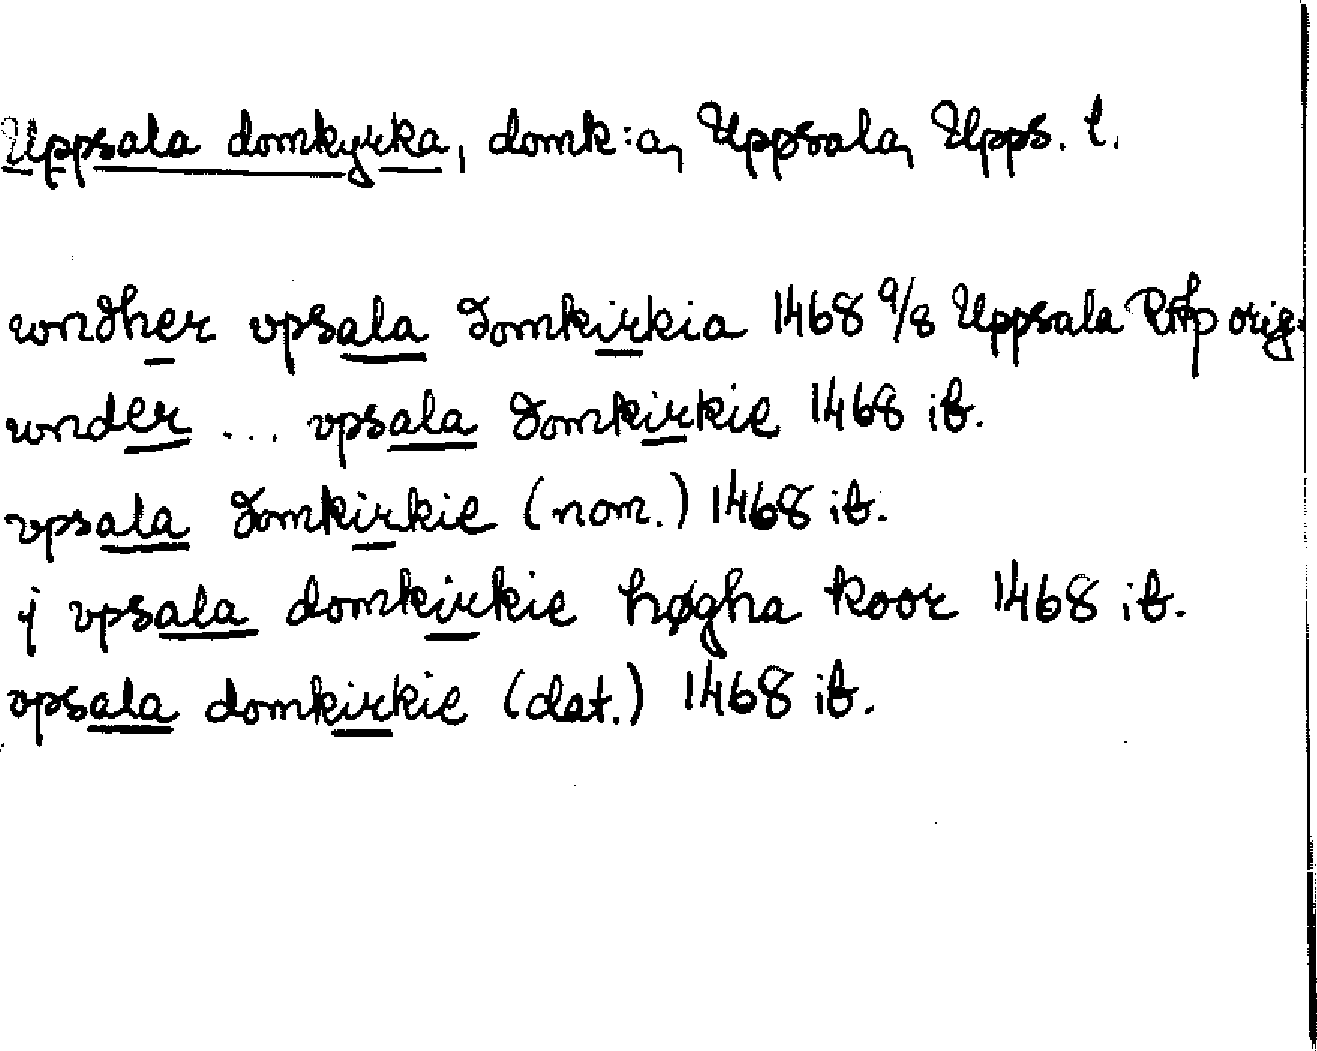 Uppsala domkyrka, domk:a, Uppsala, Upps. l.
wndher vpsala domkirkia 1468 9/8 Uppsala RAp orig.
wnder ... vpsala domkirkie 1468 ib.
vpsala domkirkie (nom.) 1468 ib.
j vpsala domkirkie høgha koor 1468 ib.
vpsala domkirkie (dat.) 1468 ib.